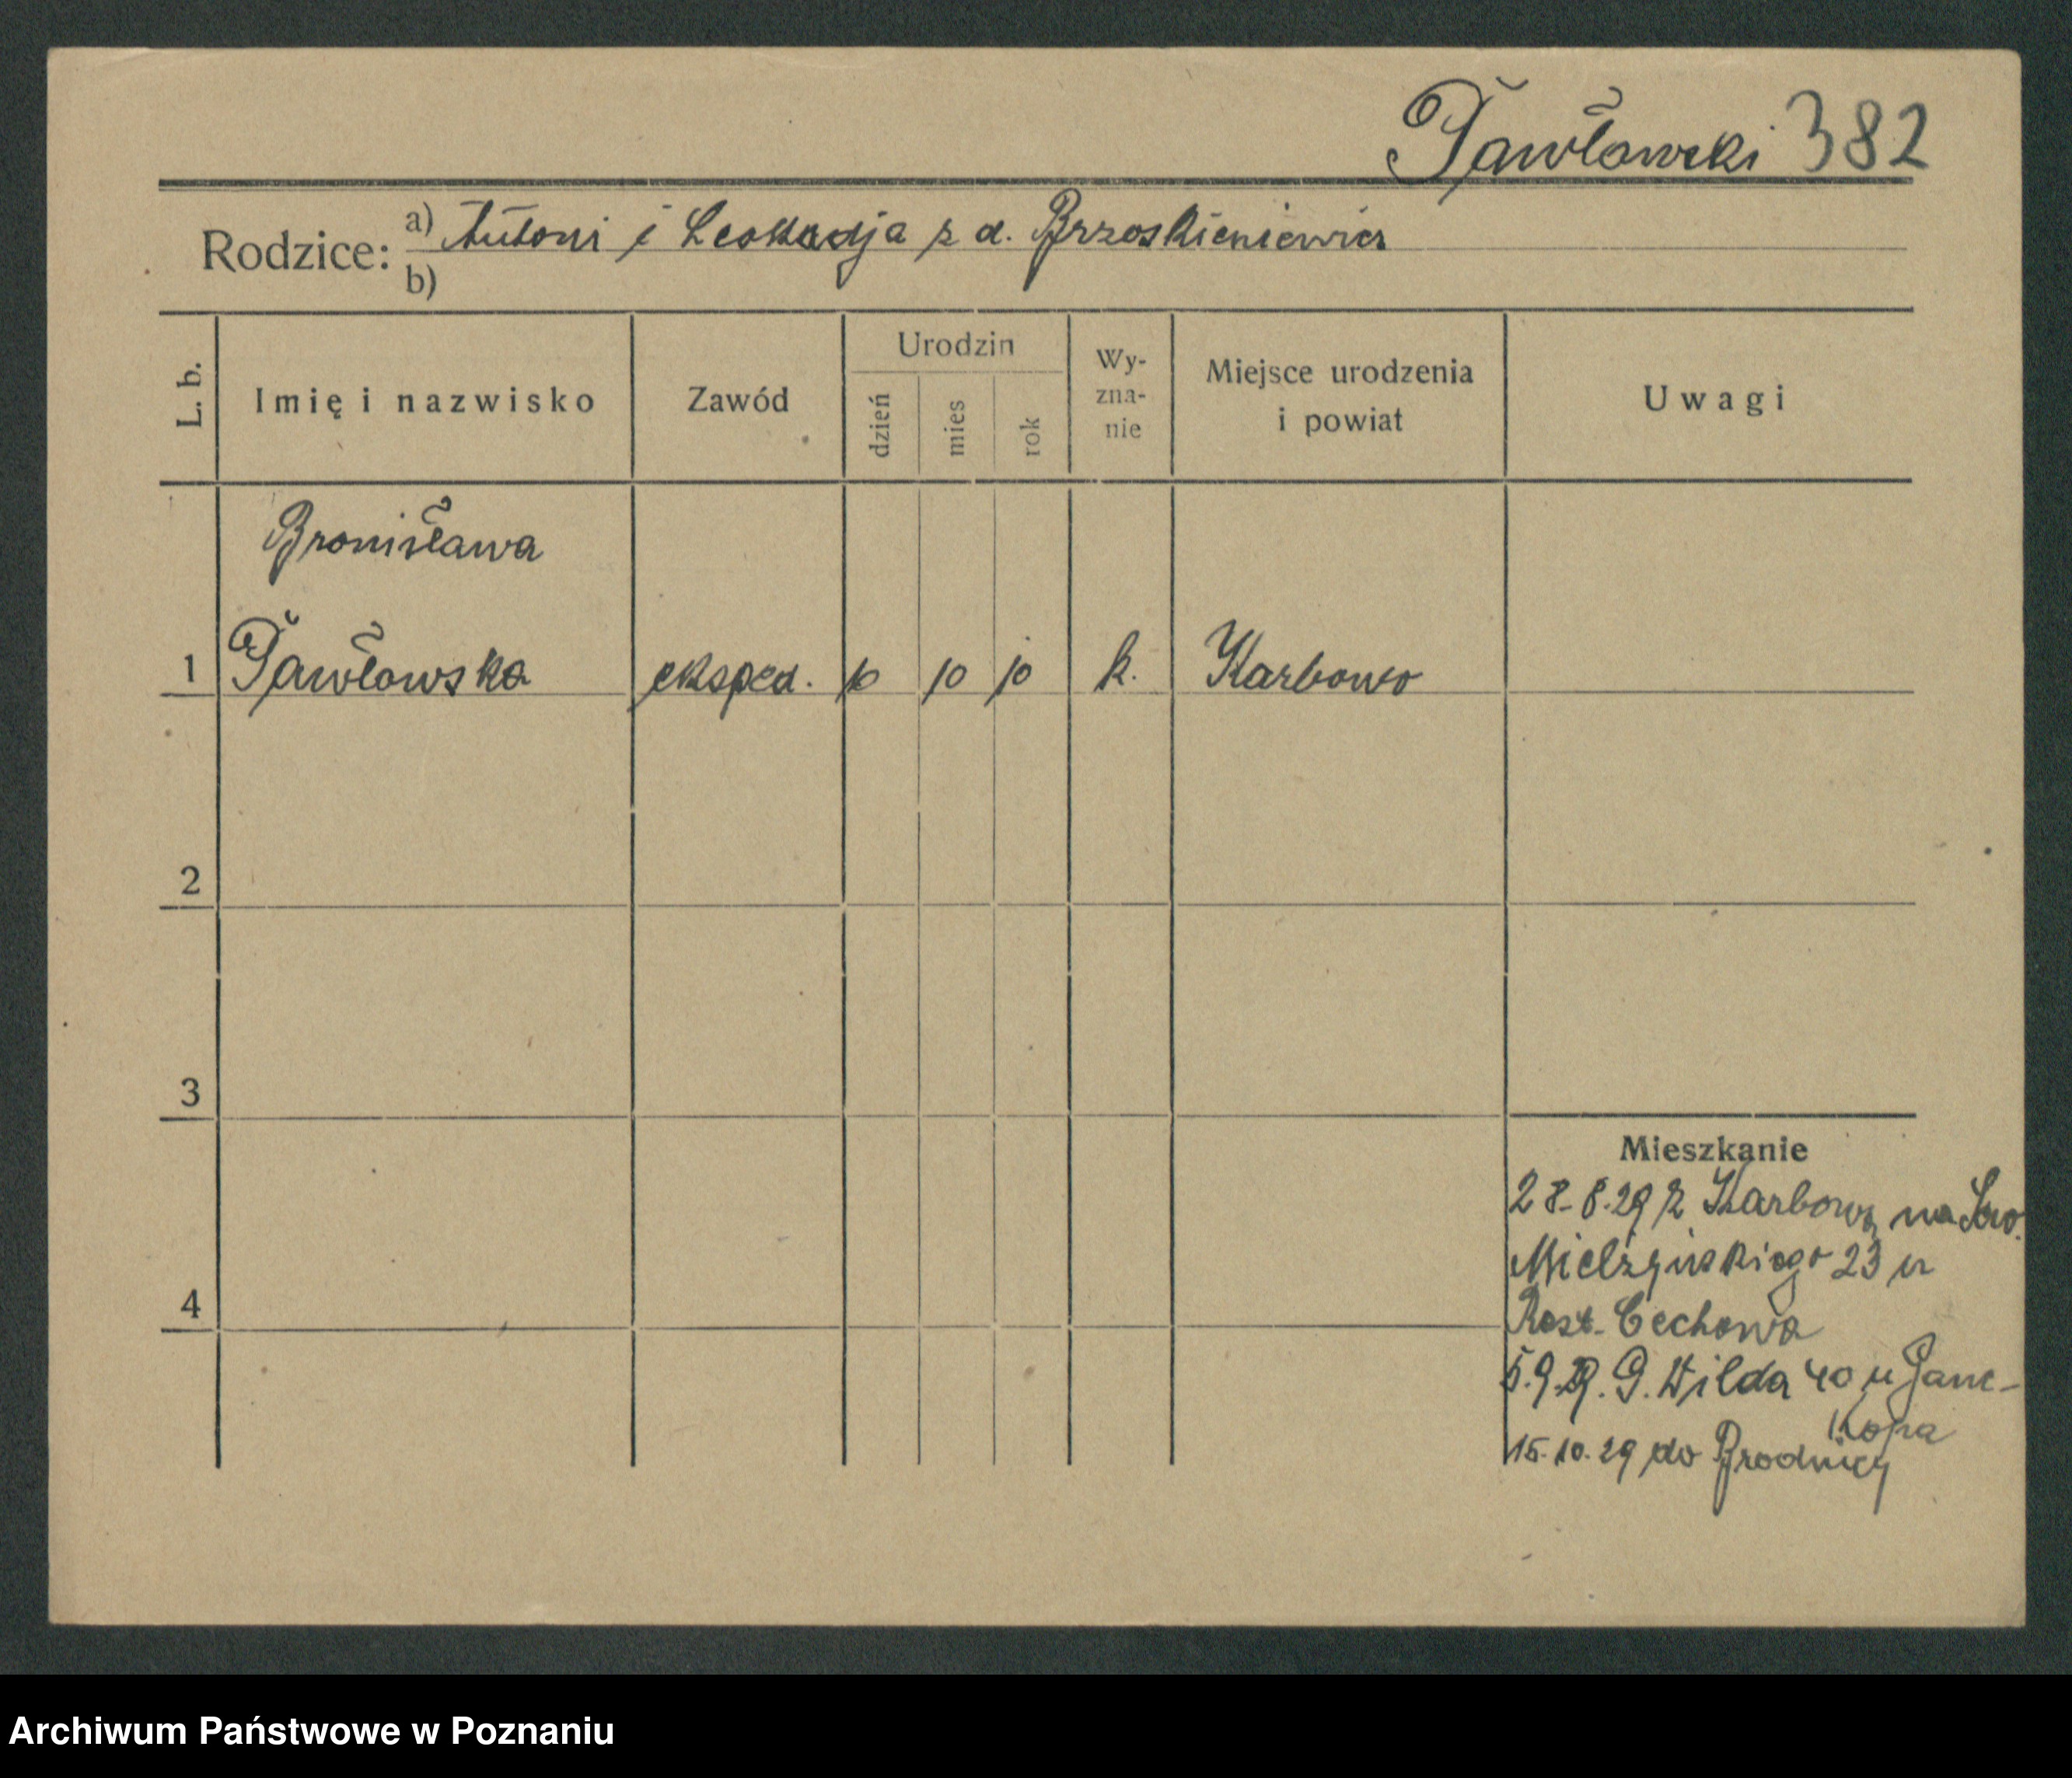 Pawłowski 382
Rodzice: a) Antoni i Leokadja z d. Brzoskieniewicz
b)
L. b. Imię i nazwisko Zawód Urodzin dzień mies rok Wy-zna-nie Miejsce urodzenia i powiat Uwagi
Bronisława
1 Pawłowska eksped. 10 10 10 k. Karbowo
2
3
Mieszkanie
28.8.29 z Karbowa na Sew.
Mielżyńskiego 23 u
4
Cechowa
5.9.29. G. Wilda 40 u Jane-
kopa
15.10.29 do Brodnicy
Archiwum Państwowe w Poznaniu